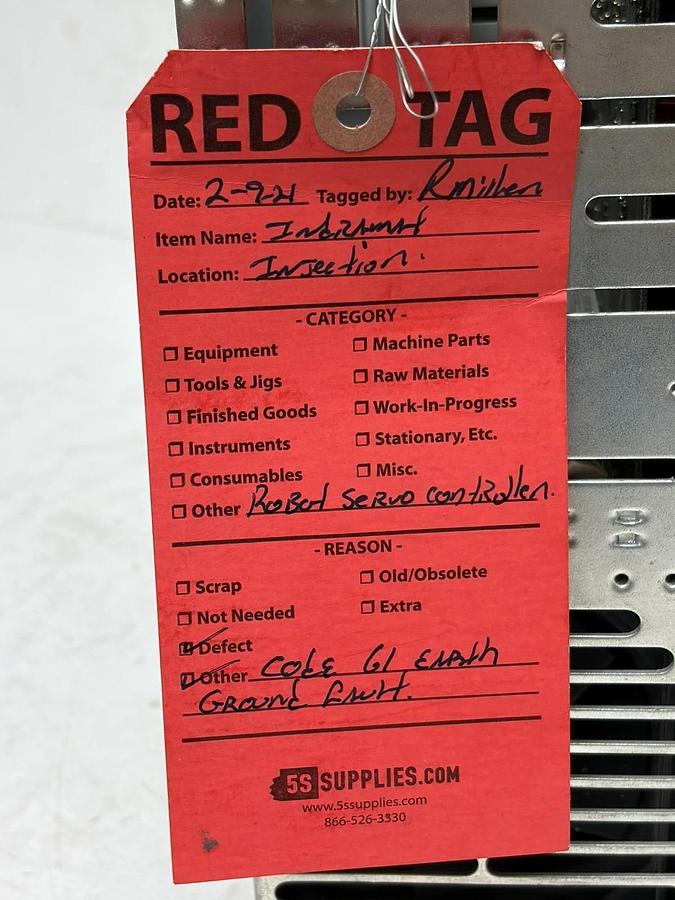 RED TAG
Date: 2-9-21 Tagged by: RMillen
Item Name:
Location: Injection.
- CATEGORY -
Equipment Machine Parts
Tools & Jigs Raw Materials
Finished Goods Work-In-Progress
Instruments Stationary, Etc.
Consumables Misc.
Other Robot Servo controller.
- REASON -
Scrap Old/Obsolete
Not Needed Extra
Defect
Other Code 61 Earth
Ground fault.
5S SUPPLIES.COM
www.5ssupplies.com
866-526-3330